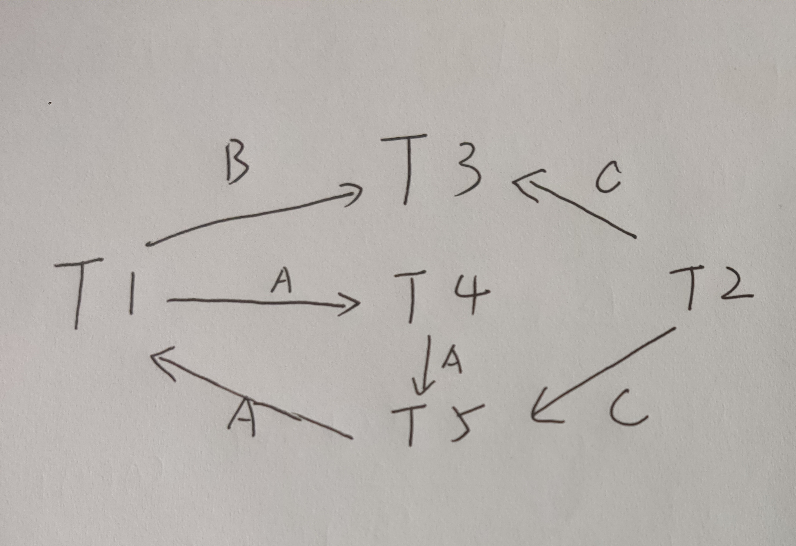 B
T3
C
T1
A
T4
T2
A
A
T5
C